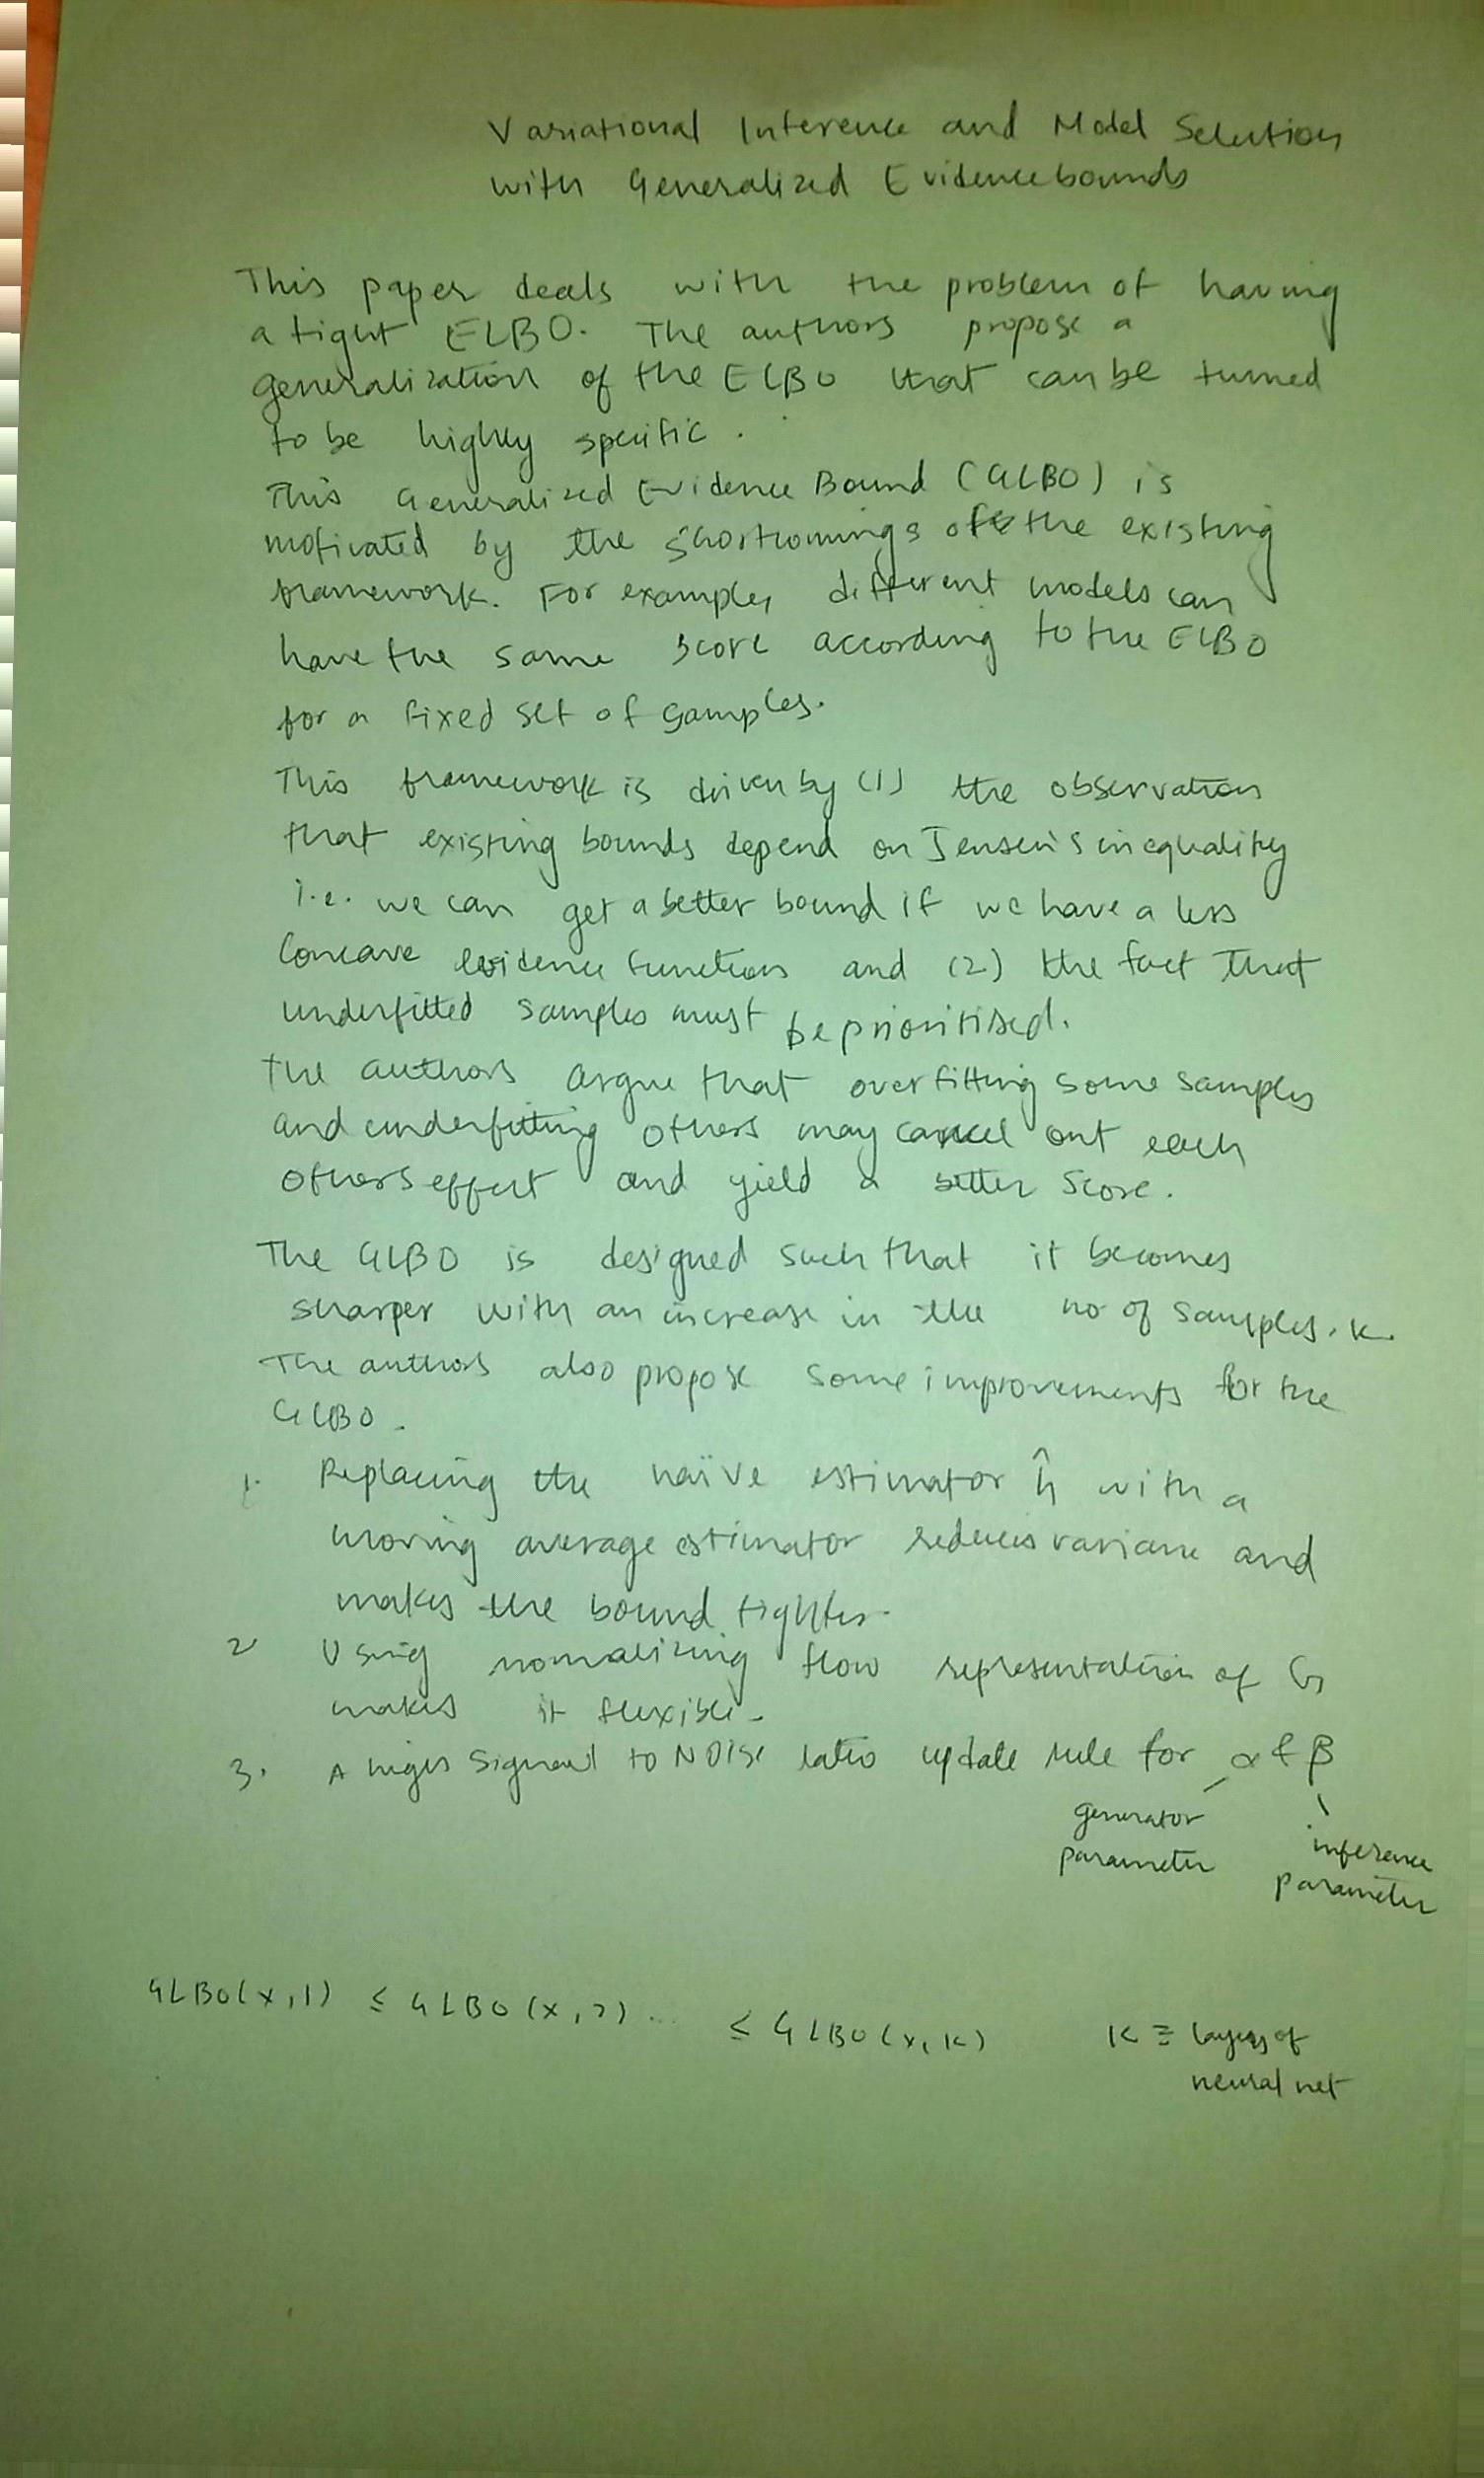 Variational Inference and Model Selection
with Generalized Evidence bounds
This paper deals with the problem of having
a tight ELBO. The authors propose a
generalization of the ELBO that can be turned
to be highly specific.
This Generalized Evidence Bound (GLBO) is
motivated by the shortcomings of the existing
framework. For example, different models can
have the same score according to the ELBO
for a fixed set of samples.
This framework is driven by (1) the observation
that existing bounds depend on Jensen's inequality
i.e. we can get a better bound if we have a less
concave evidence function and (2) the fact that
underfitted samples must be prioritised.
The authors argue that overfitting some samples
and underfitting others may cancel out each
others effect and yield a better score.
The GLBO is designed such that it becomes
sharper with an increase in the no of samples, K.
The authors also propose some improvements for the
GLBO.
1. Replacing the naïve estimator ĥ with a
moving average estimator reduces variance and
makes the bound tighter.
2 Using normalizing flow representation of G
makes it flexible.
3. A high Signal to Noise ratio update rule for α & β
generator
parameter
inference
parameter
GLBO(x,1) ≤ GLBO(x,2) ... ≤ GLBO(x,K) K ≡ layers of
neural net